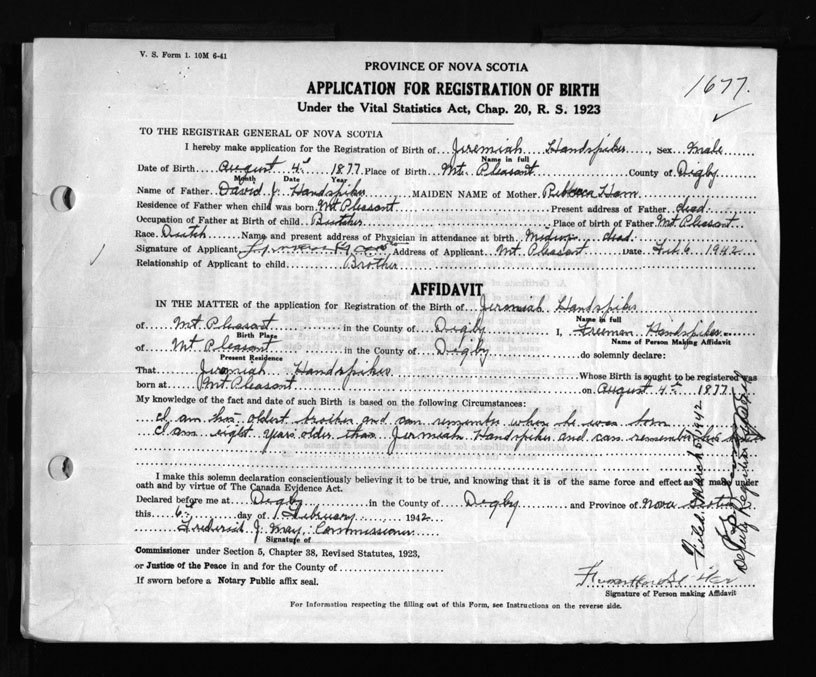 V. S. Form 1. 10M 6-41
PROVINCE OF NOVA SCOTIA
1677.
APPLICATION FOR REGISTRATION OF BIRTH
Under the Vital Statistics Act, Chap. 20, R. S. 1923
TO THE REGISTRAR GENERAL OF NOVA SCOTIA
I hereby make application for the Registration of Birth of Jeremiah Handspiker, Sex Male
Name in full
Date of Birth August 4th 1877 Place of Birth Mt. Pleasant County of Digby
Month Date Year
Name of Father David J. Handspiker MAIDEN NAME of Mother Rebecca Ham
Residence of Father when child was born Mt Pleasant Present address of Father dead
Occupation of Father at Birth of child Butcher Place of birth of Father Mt Pleasant
Race Dutch Name and present address of Physician in attendance at birth Midwife dead
Signature of Applicant Address of Applicant Mt. Pleasant Date Feb 6 1942
Relationship of Applicant to child Brother
AFFIDAVIT
IN THE MATTER of the application for Registration of the Birth of Jeremiah Handspiker
Name in full
of Mt Pleasant in the County of Digby I, Freeman Handspiker
Birth Place Name of Person Making Affidavit
of Mt Pleasant in the County of Digby do solemnly declare:
Present Residence
That Jeremiah Handspiker Whose Birth is sought to be registered was
born at Mt Pleasant on August 4th 1877
My knowledge of the fact and date of such Birth is based on the following Circumstances:
I am his oldest brother and can remember when he was born
I am eight years older than Jeremiah Handspiker and can remember his birth
I make this solemn declaration conscientiously believing it to be true, and knowing that it is of the same force and effect as if made under
oath and by virtue of The Canada Evidence Act.
Declared before me at Digby in the County of Digby and Province of Nova Scotia
this 6th day of February, 1942
Frederick J. May, Commissioner
Signature of
Commissioner under Section 5, Chapter 38, Revised Statutes, 1923,
or Justice of the Peace in and for the County of
If sworn before a Notary Public affix seal.
Signature of Person making Affidavit
For Information respecting the filling out of this Form, see Instructions on the reverse side.
Filed March 5/1942
Deputy Registrar